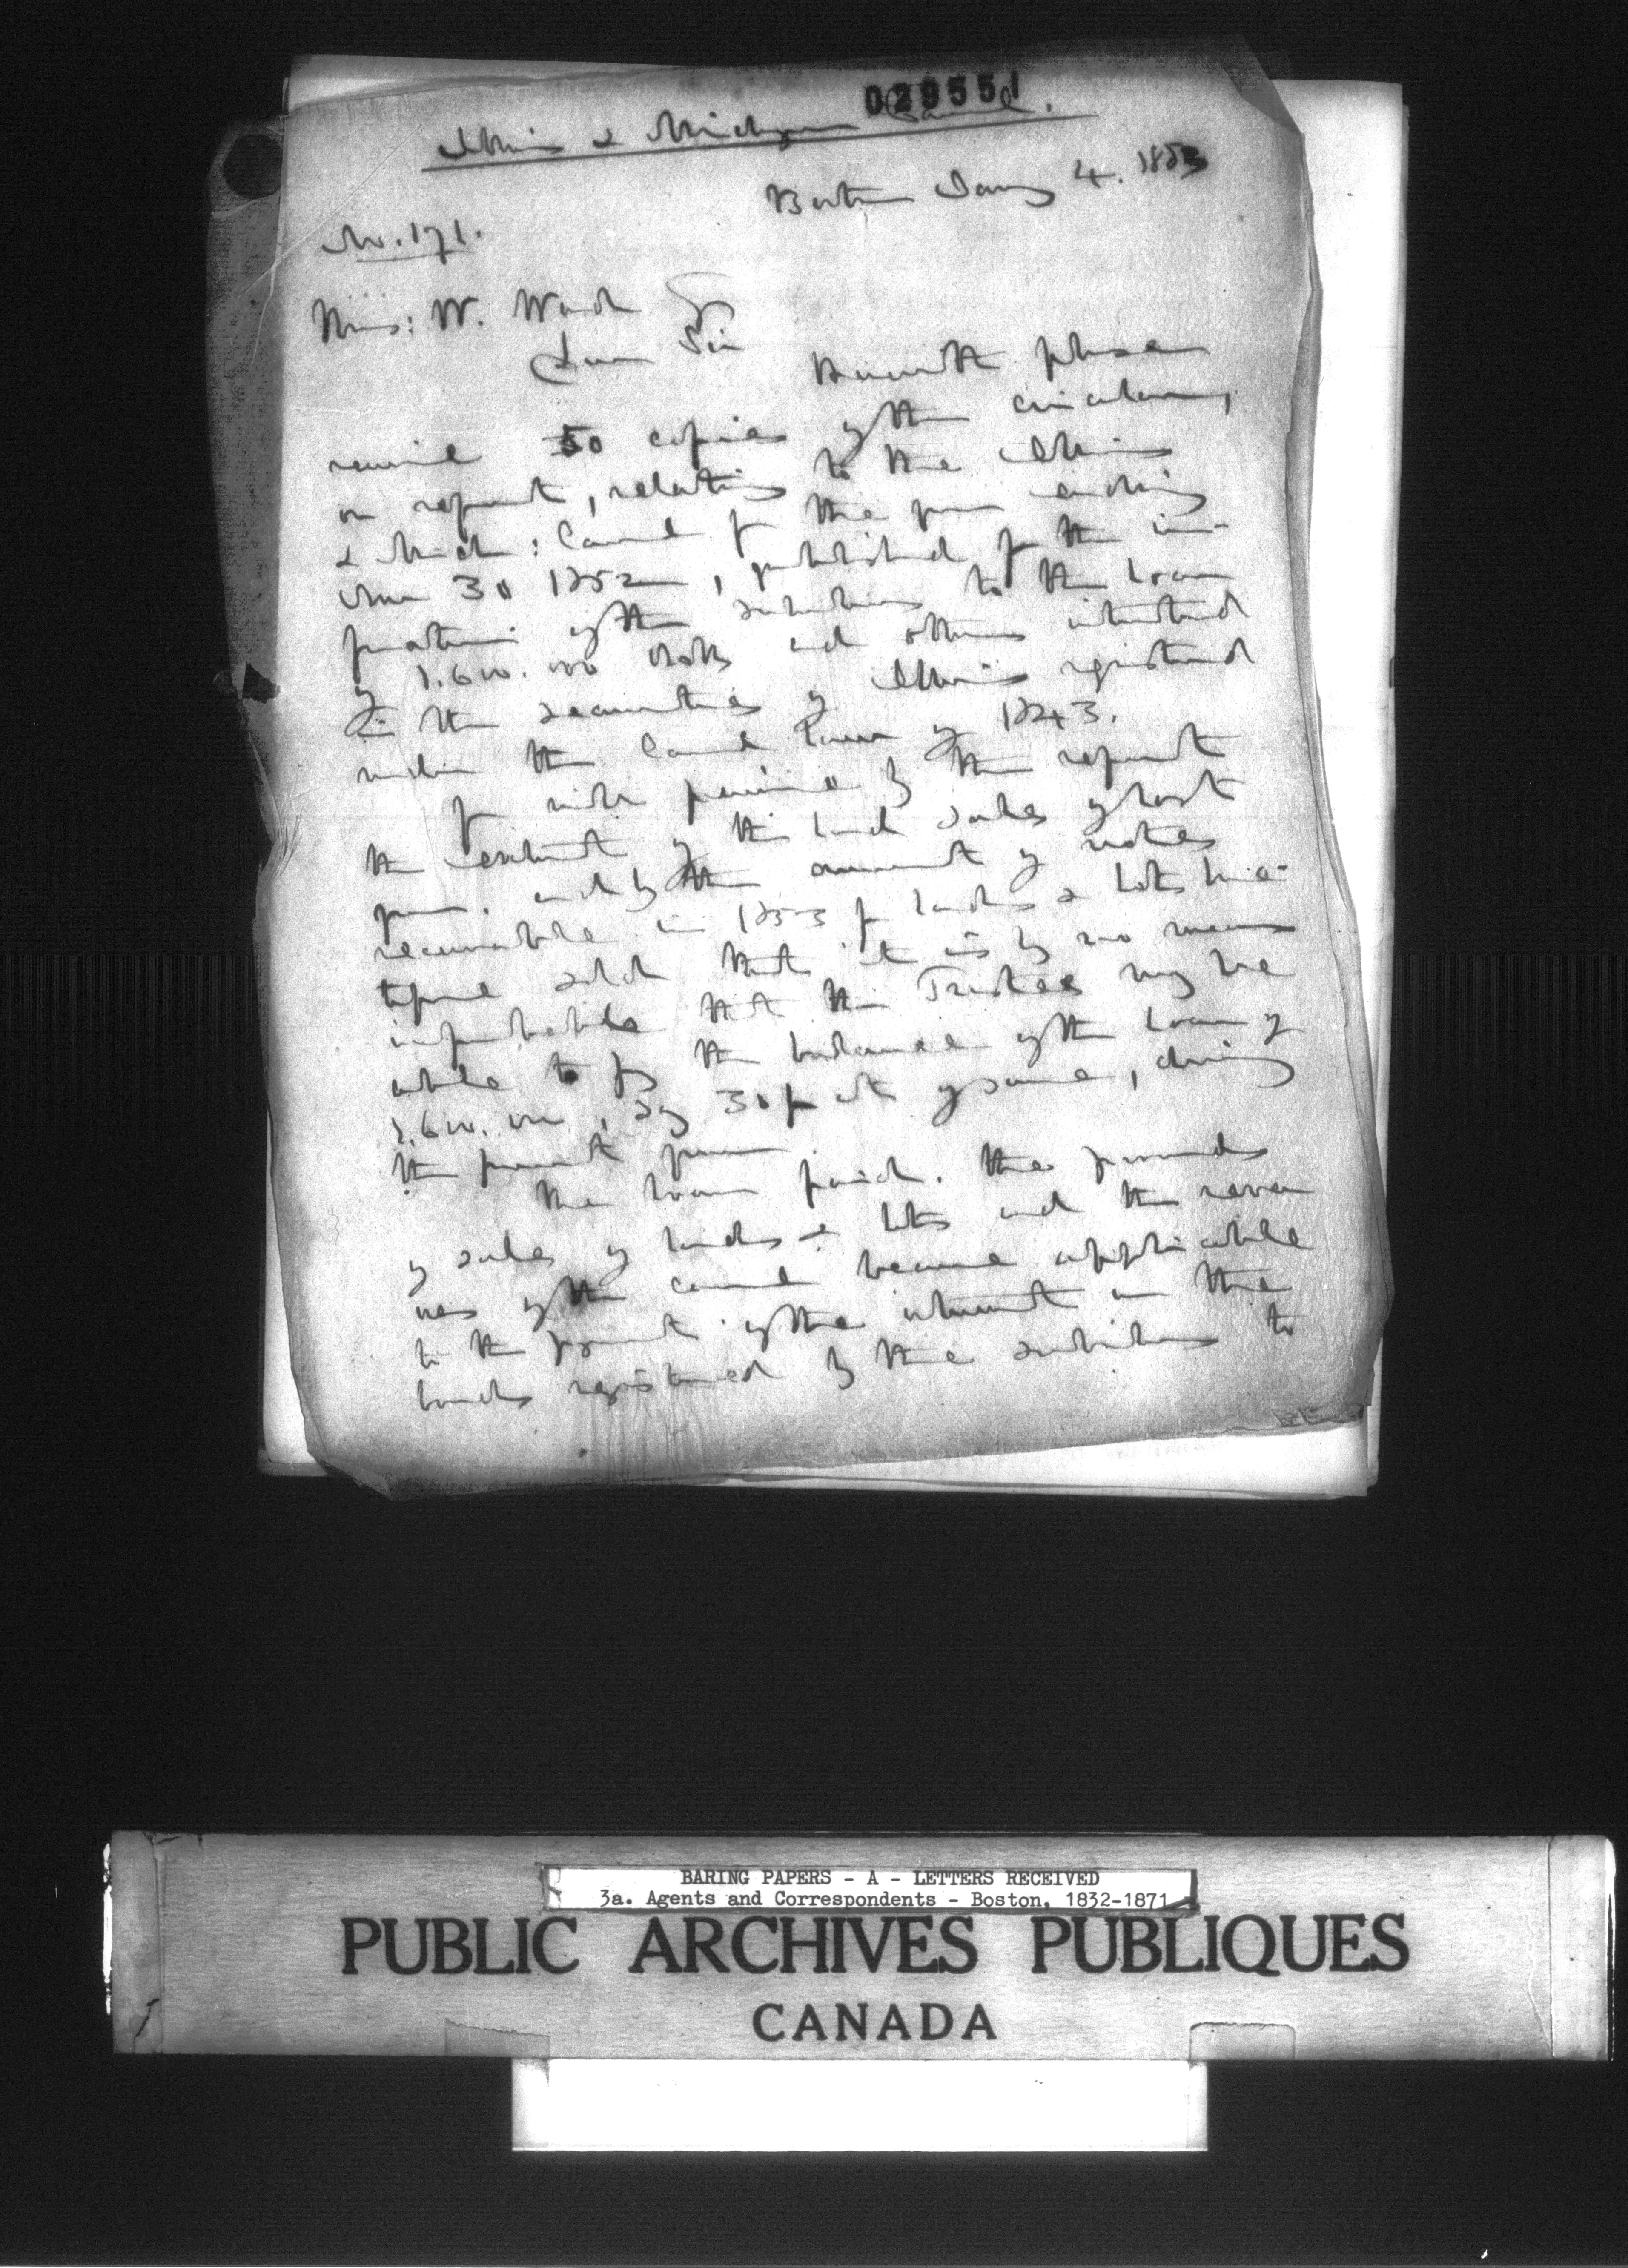 029551
Illinois & Michigan Canal.
Boston Jany 4. 1853
No. 171.
Thos: W. Ward Esq
Dear Sir
Herewith please
receive 50 copies of the circular,
or report, relating to the Illinois
& Mich: Canal for the year ending
Nov 30 1852, published for the in-
formation of the subscribers to the Loan
of 1.600.000 Dolls and others interested
in the securities of Illinois registered
under the Canal Law of 1843.
You will perceive by the report
the extent of the land sales of last
year. and by the amount of notes
receivable in 1853 for lands & lots here-
tofore sold that it is by no means
improbable that the Trustees may be
able to pay the balance of the Loan of
1.600.000, say 30 per ct of same, during
the present year.
The Loan paid. the proceeds
of sales of lands & lots and the reven
ues of the canal become applicable
to the payment of the interest on the
bonds registered by the subscribers to
BARING PAPERS - A - LETTERS RECEIVED
3a. Agents and Correspondents - Boston, 1832-1871
PUBLIC ARCHIVES PUBLIQUES
CANADA